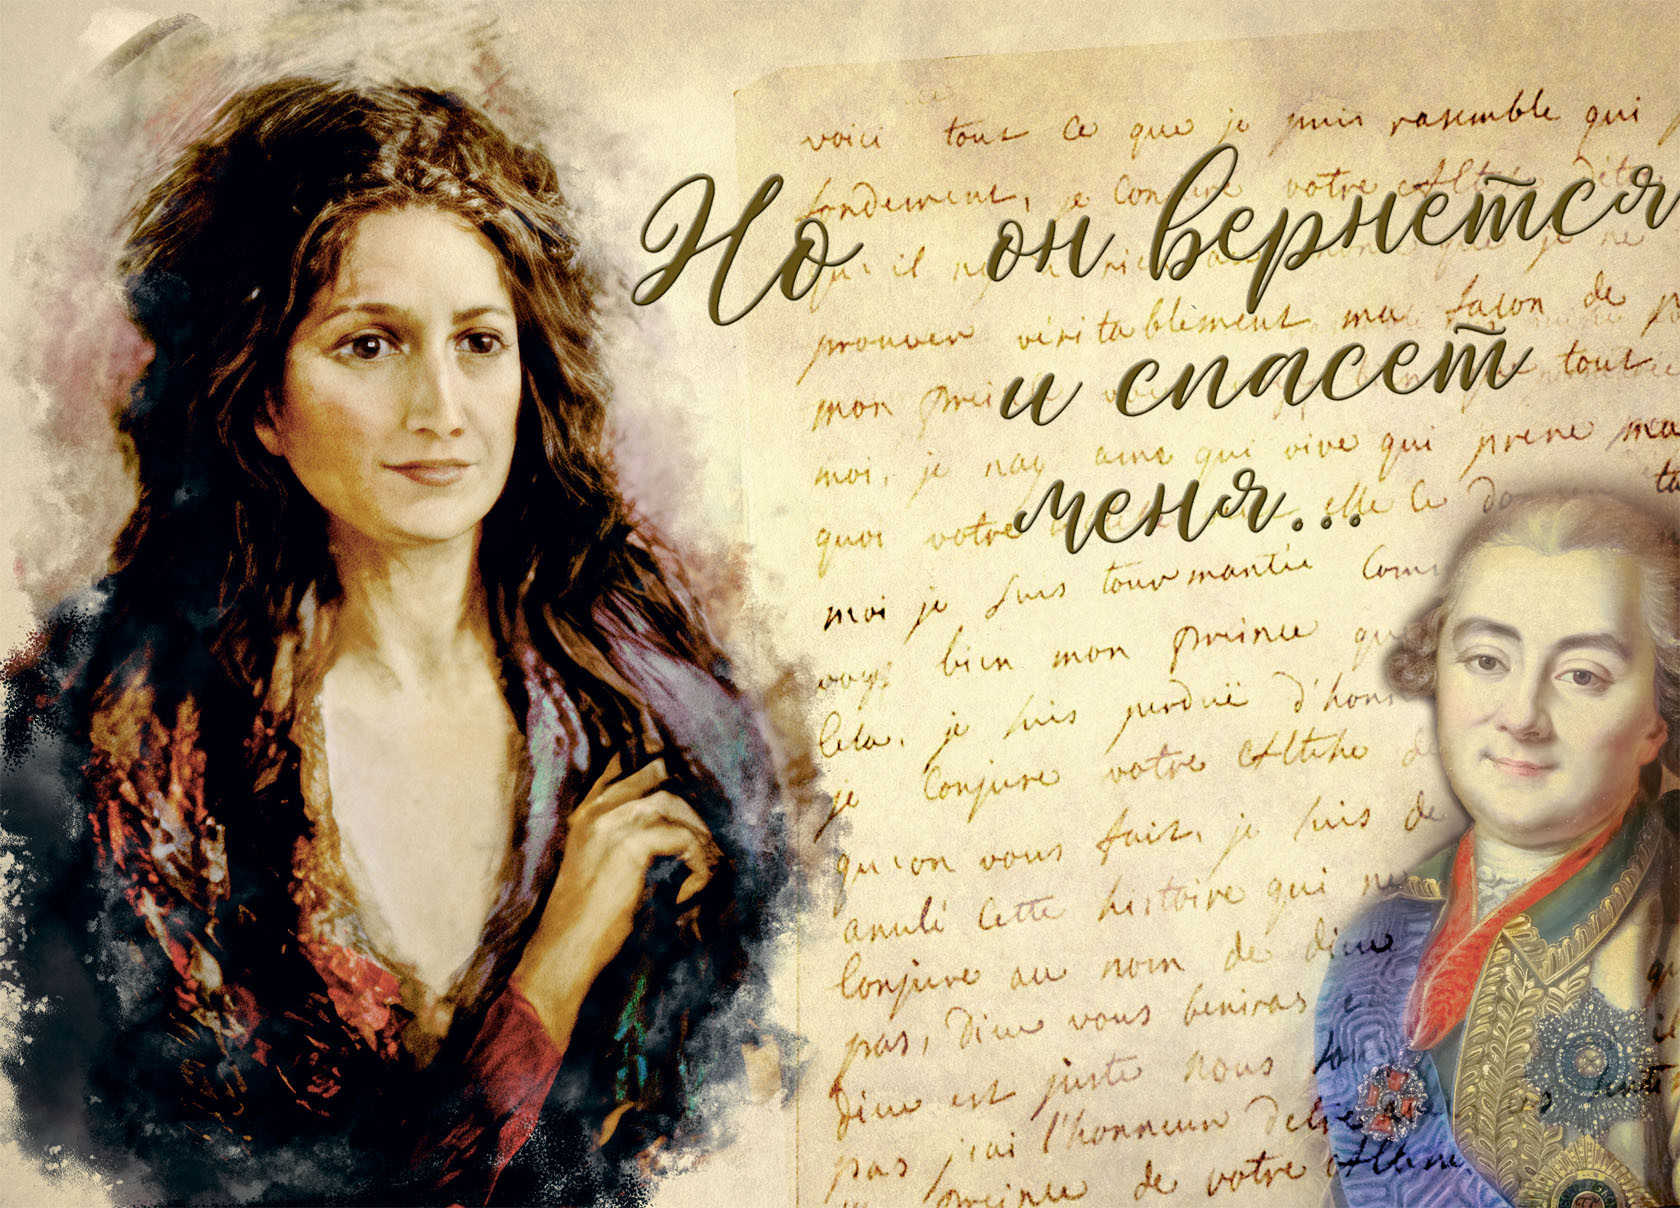 Но он вернется
и спасет
меня...
voici tout ce que je puis rasemble qui
fondement, je conjure votre Altese
qu'il
prouver véritablement ma façon de
mon prince tout
moi, je nay ame qui vive qui prene
quoi votre elle le
moi je suis tourmantée
voyé bien mon prince que
Cela, je suis perduë d'hon
je Conjure votre Altese de
qu'on vous fait, je suis de
anulé Cette histoire qui ne
Conjure au nom de dieu
pas, Dieu vous beniras
Dieu est juste nous
pas j'ai l'honneur
prince de votre Altese